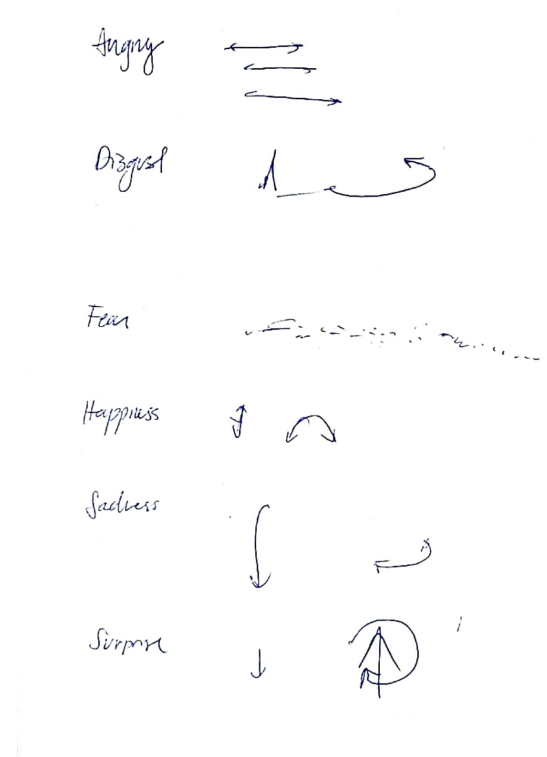 Angry
Disgust
Fear
Happiness
Sadness
Surprise